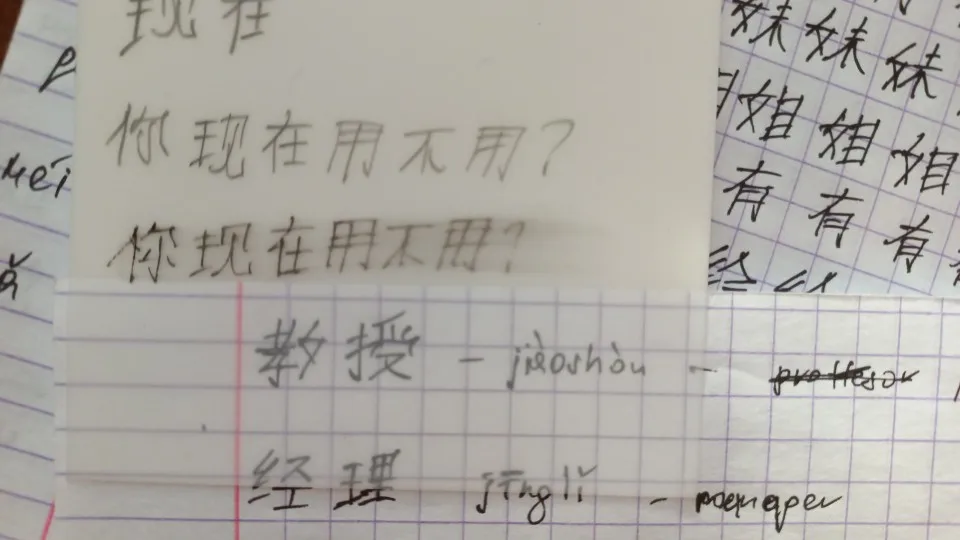 现在
你现在用不用?
你现在用不用?
教授 - jiàoshòu -
经理 jīnglǐ -
妹 妹 妹
姐 姐 姐
有 有 有
给 给